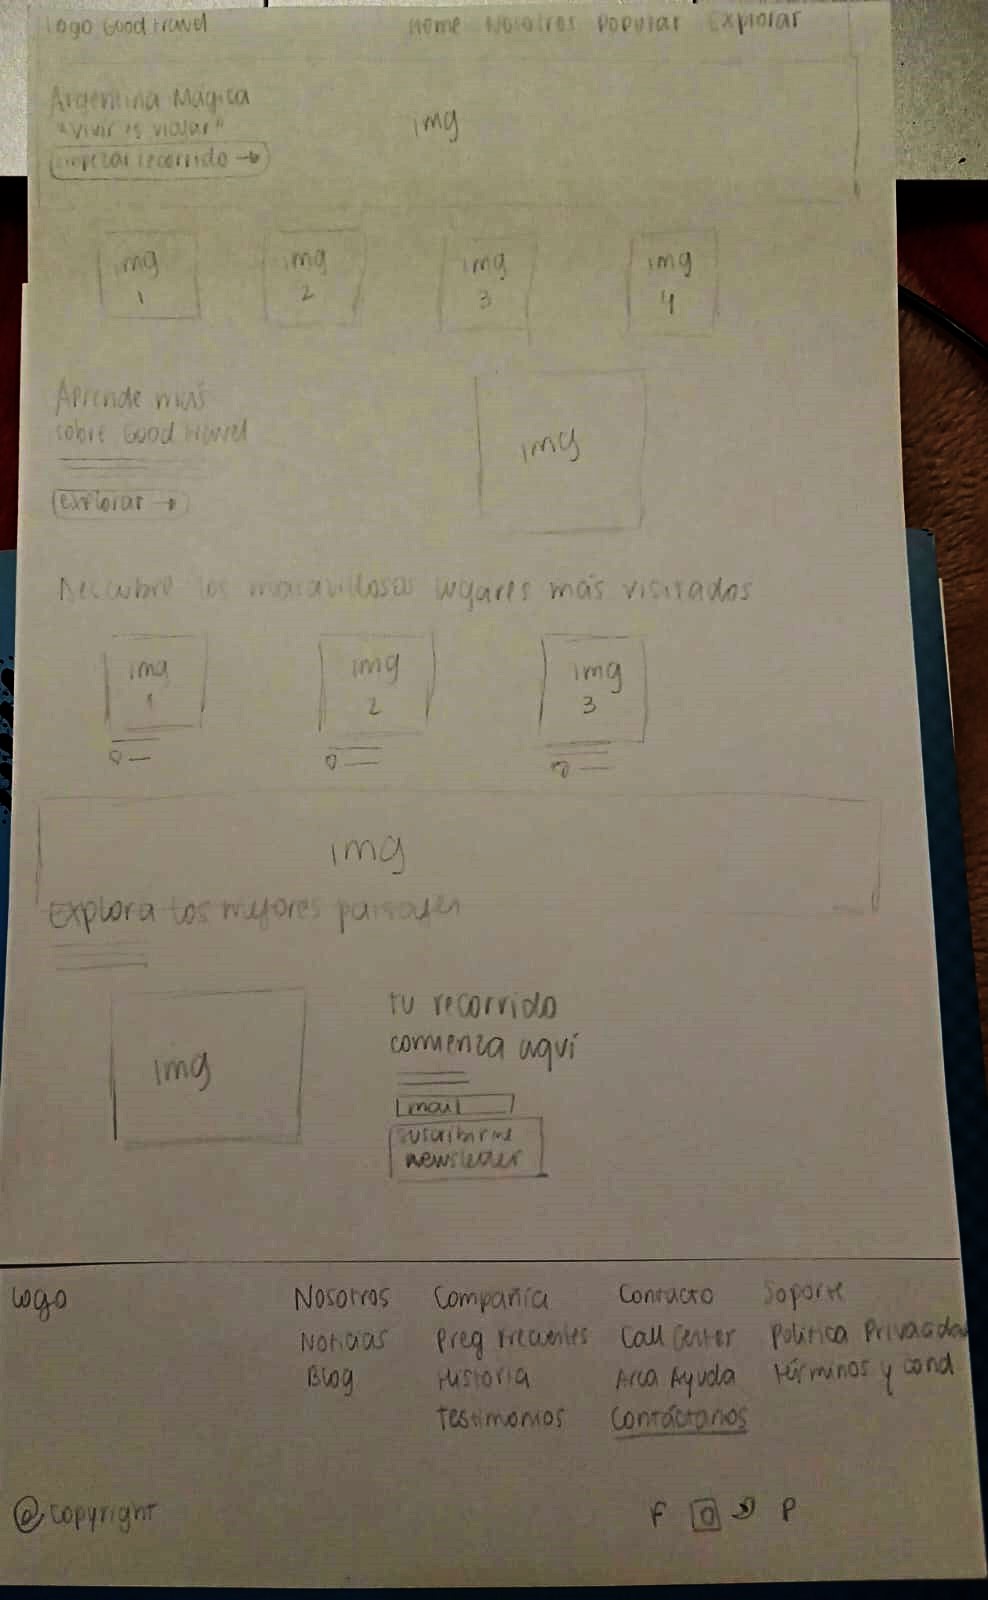 Logo Good travel
Home Nosotros Popular Explorar
Argentina Mágica
"vivir es viajar"
Empezar recorrido →
img
img
1
img
2
img
3
img
4
Aprende más
sobre Good travel
explorar →
img
Descubre los maravillosos lugares más visitados
img
1
img
2
img
3
img
Explora los mejores paisajes
img
tu recorrido
comienza aquí
mail
suscribirme
newsletter
Logo
Nosotros
Noticias
Blog
Compañía
Preg Frecuentes
Historia
Testimonios
Contacto
Call Center
Area Ayuda
Contáctanos
Soporte
Política Privacidad
términos y cond
@ copyright
F
P